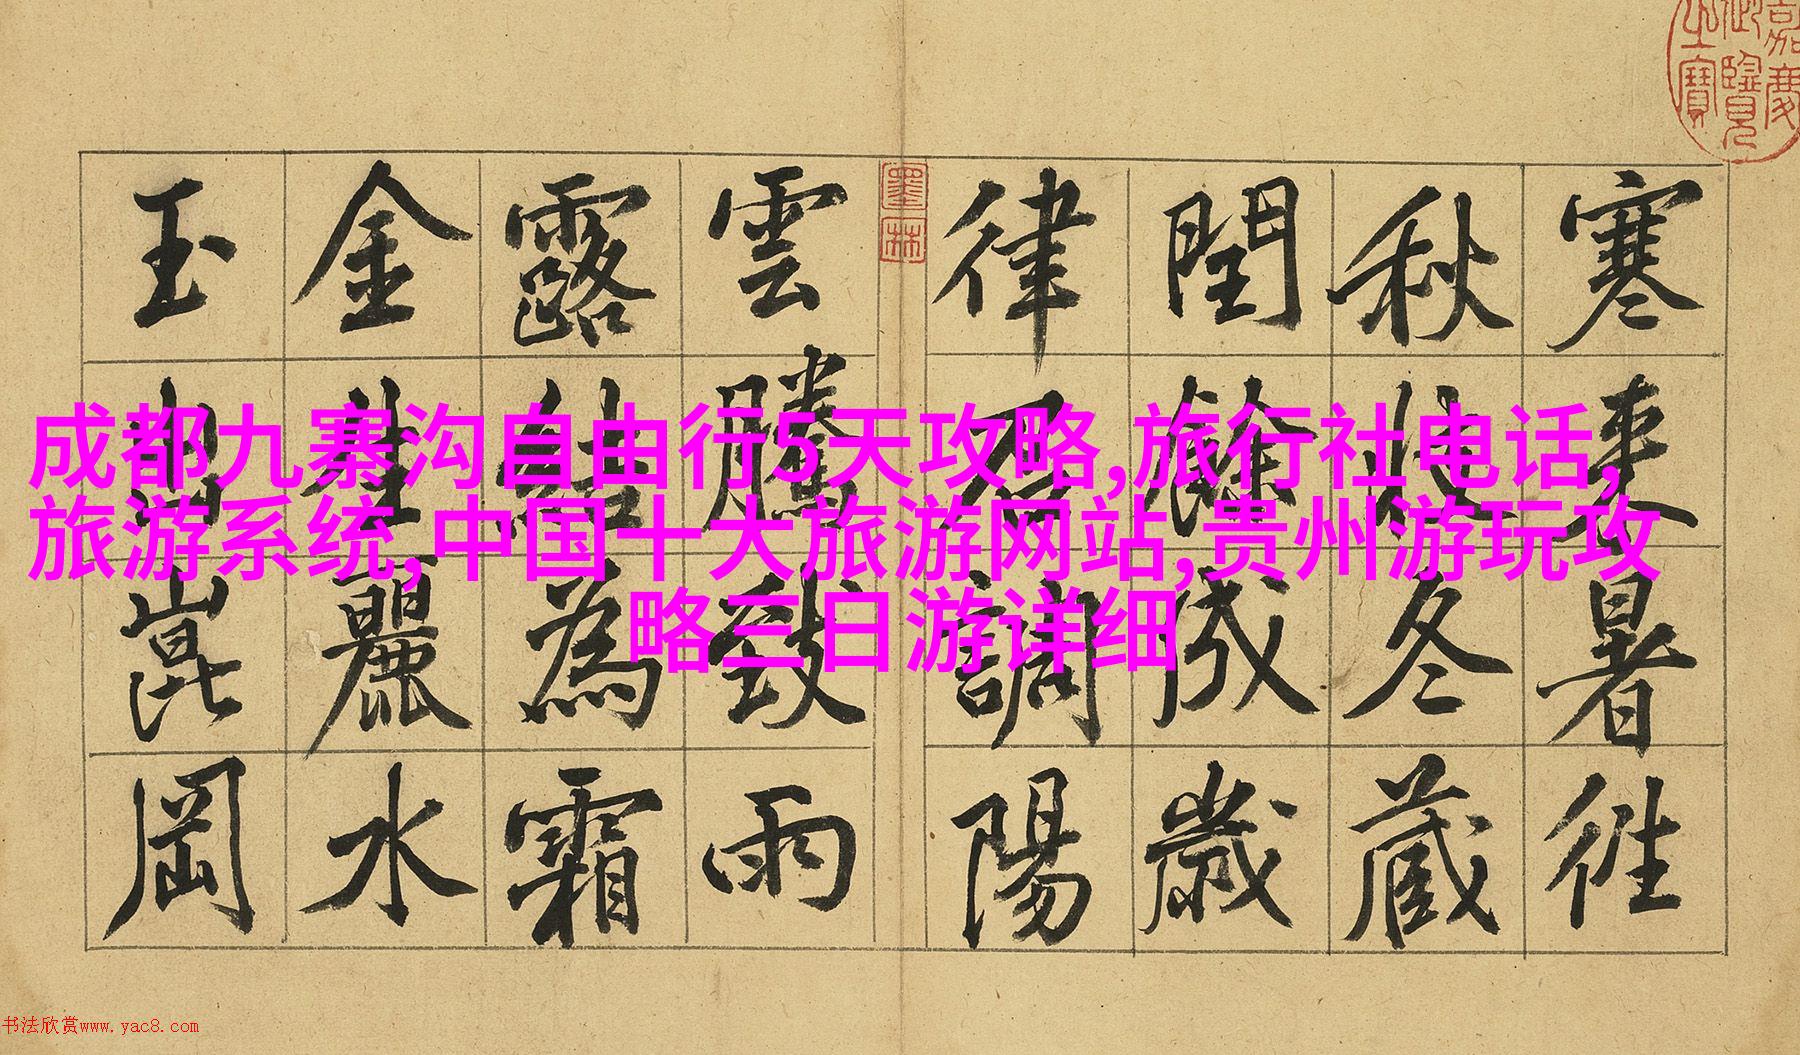 嘉慶
御覽
之寶
寒来暑徃
秋收冬藏
閏餘成歲
律調陽
墨林
雲騰致雨
露結為霜
金生麗水
玉出崑岡
成都九寨沟自由行5天攻略,旅行社电话,
旅游系统,中国十大旅游网站,贵州游玩攻
略三日游详细
书法欣赏www.yac8.com